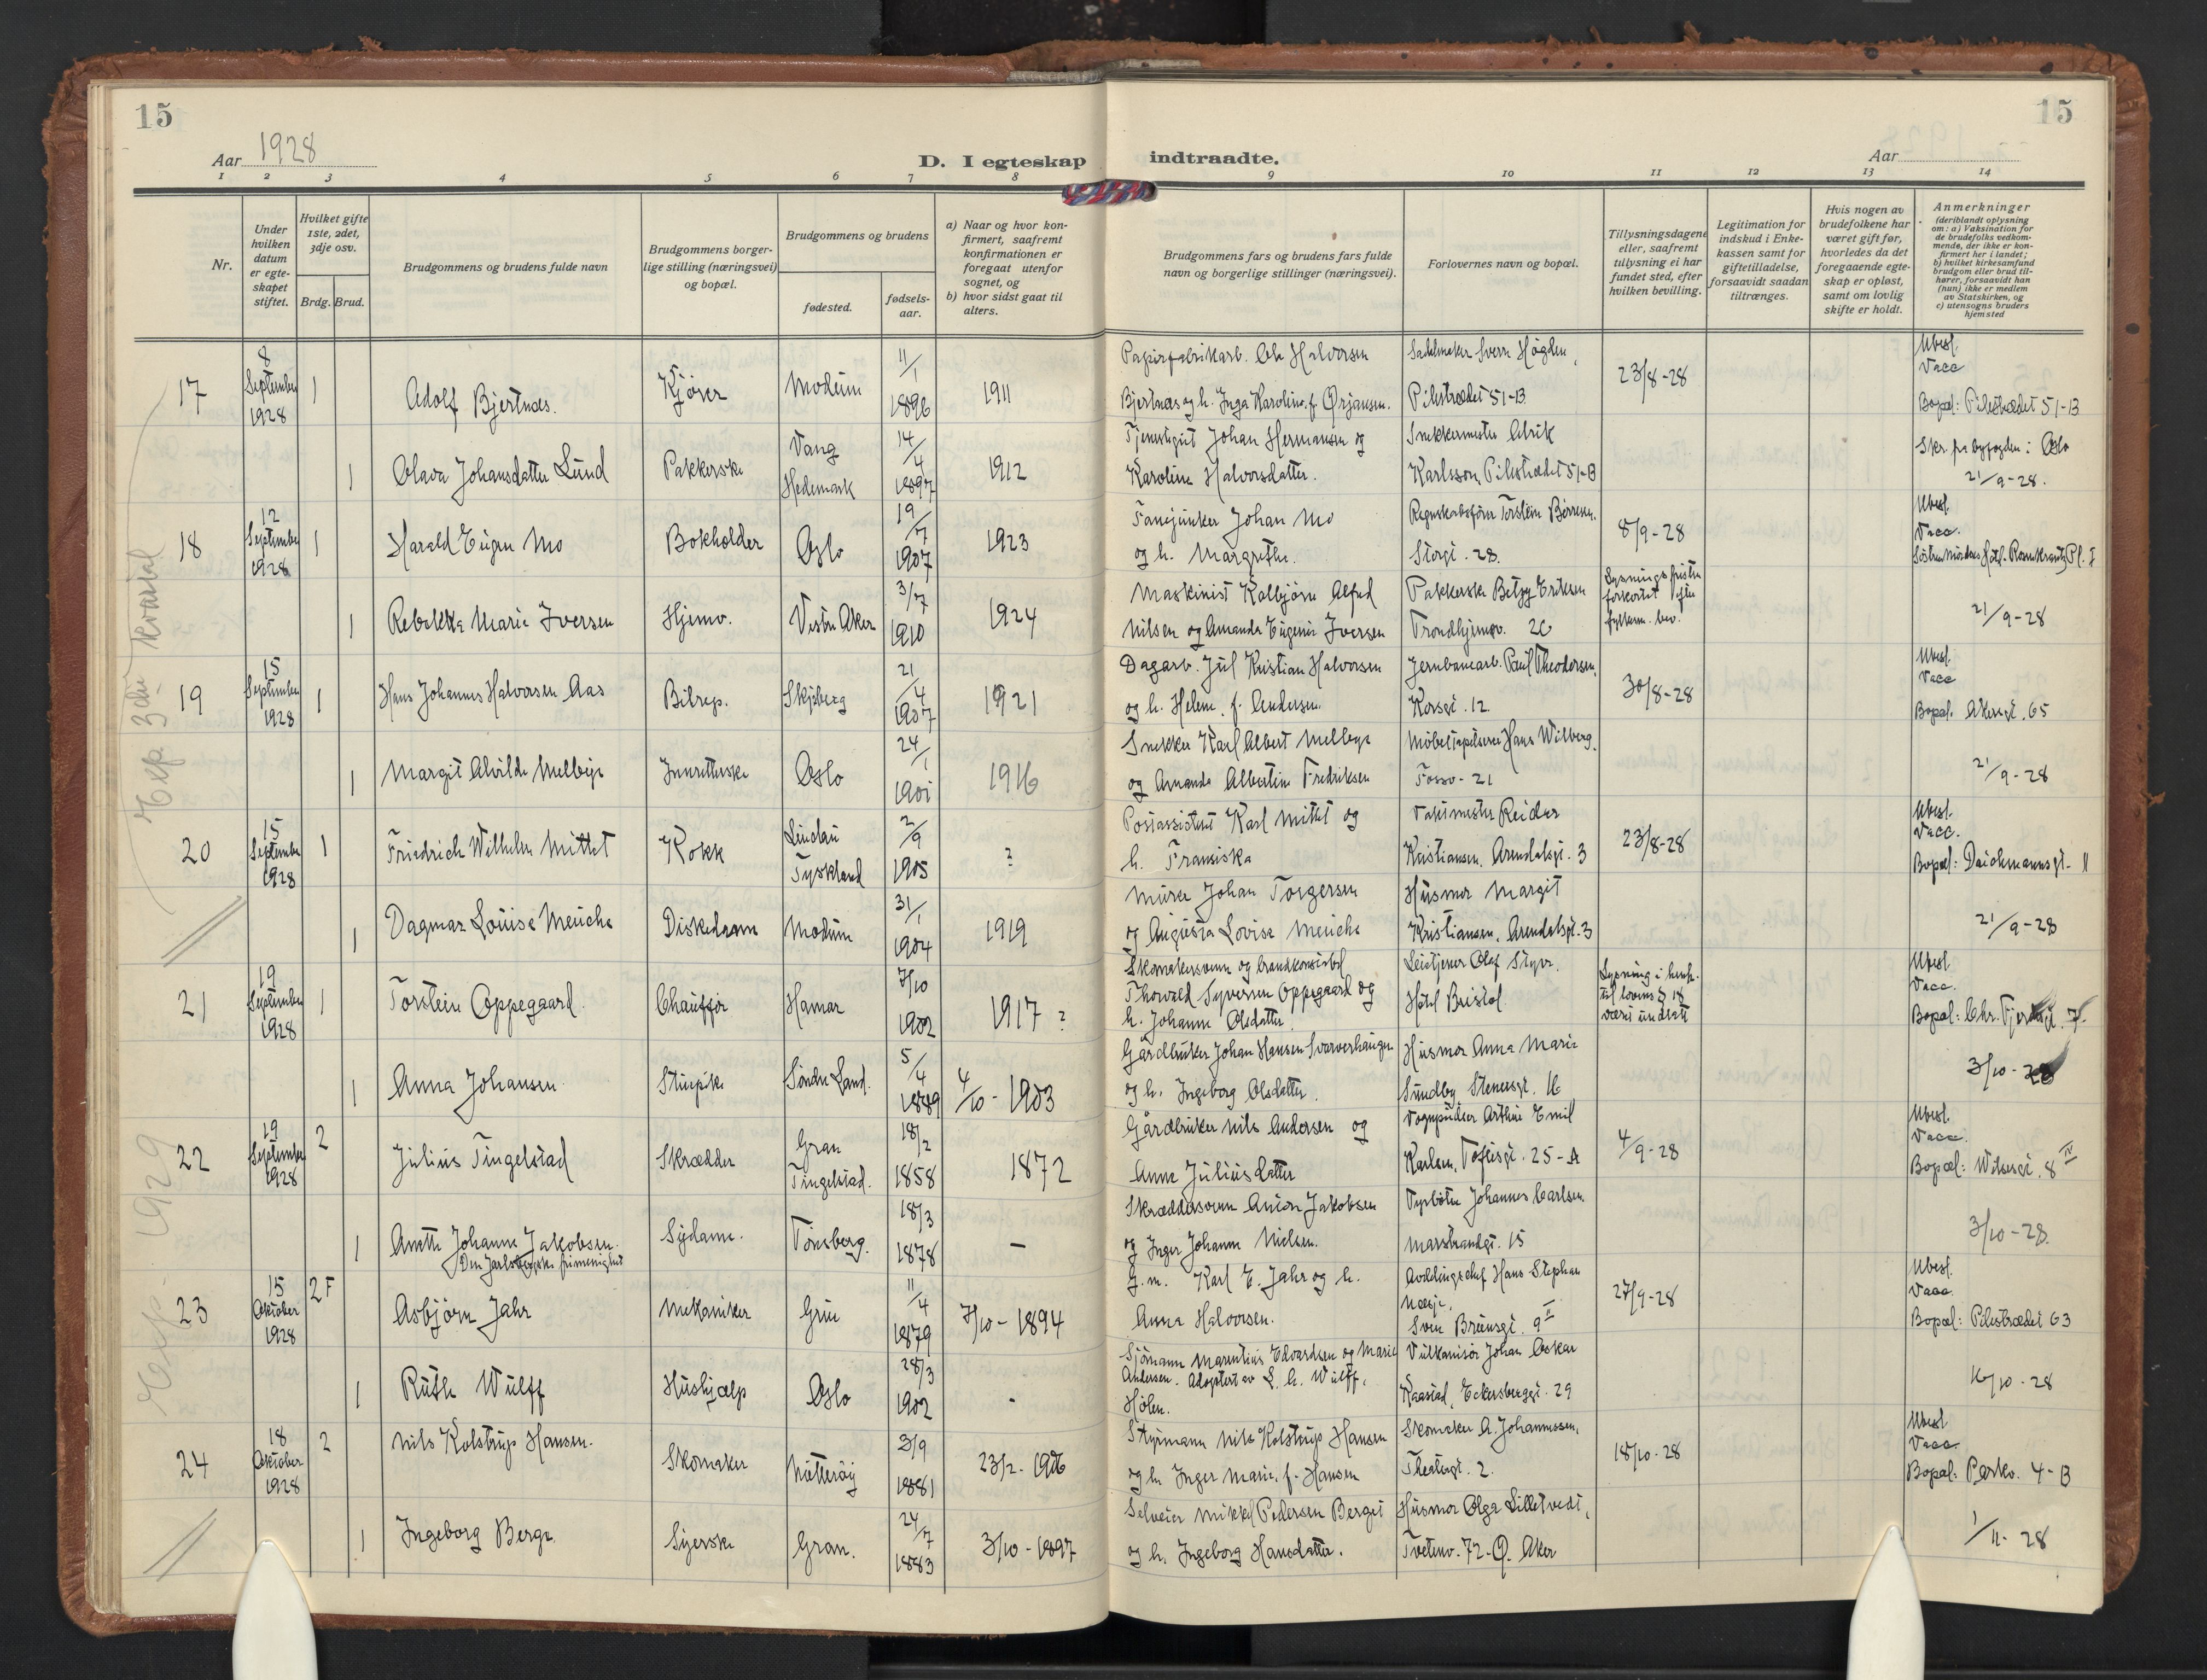 15
15
Aar 1928
D. I egteskap
indtraadte.
Aar
1 2 3 4 5 6 7 8 9 10 11 12 13 14
Nr.
Under hvilken datum er egteskapet stiftet.
Hvilket gifte 1ste, 2det, 3dje osv.
Brdg. Brud.
Brudgommens og brudens fulde navn
Brudgommens borgerlige stilling (næringsvei) og bopæl.
Brudgommens og brudens
fødested.
fødselsaar.
a) Naar og hvor konfirmert, saafremt konfirmationen er foregaat utenfor sognet, og
b) hvor sidst gaat til alters.
Brudgommens fars og brudens fars fulde navn og borgerlige stillinger (næringsvei).
Forlovernes navn og bopæl.
Tillysningsdagene eller, saafremt tillysning ei har fundet sted, efter hvilken bevilling.
Legitimation for indskud i Enkekassen samt for giftetilladelse, forsaavidt saadan tiltrænges.
Hvis nogen av brudefolkene har været gift før, hvorledes da det foregaaende egteskap er opløst, samt om lovlig skifte er holdt.
Anmerkninger
(deriblandt oplysning om: a) Vaksination for de brudefolks vedkommende, der ikke er konfirmert her i landet; b) hvilket kirkesamfund brudgom eller brud tilhører, forsaavidt han (hun) ikke er medlem av Statskirken, og c) utensogns bruders hjemsted
Exp. 3die kvartal
17
8 September 1928
1
Adolf Bjertnæs.
Kjører
Modum
11/1 1896
1911
Papirfabrikarb. Ole Halvorsen
Bjertnæs og h. Inga Karoline, f. Ørjansen.
Sadelmaker Sverre Høgden,
Pilestrædet 51-B
23/8-28
Ubesl.
Vacc
Bopæl: Pilestrædet 51-B
1
Olava Johansdatter Lund
Pakkerske
Vang
Hedemark
14/4 1897
1912
Tjenestegut Johan Hermansen og
Karoline Halvorsdatter.
Snekkermester Alrik
Karlsson, Pilestrædet 51-B
Skr. fra byfogden i Oslo
21/9-28.
18
12 September 1928
1
Harald Eugen Mo
Bokholder
Oslo
19/7 1907
1923
Fanejunker Johan Mo
og h. Margrethe.
Regnskabsfører Torstein Børresen.
Storgt. 28.
8/9-28
Ubesl.
Vacc.
1
Rebekka Marie Iversen
Hjemv.
Vestre Aker
3/7 1910
1924
Maskinist Kolbjørn Alfred
Nilsen og Amanda Eugenie Iversen
Pakkerske Betzy Eriksen
Trondhjemsv. 20
Lysningsfristen
forkortet efter
fylkesm. bev.
21/9-28
19
15 September 1928
1
Hans Johannes Halvorsen Aas
Bilrep.
Skjeberg
21/4 1907
1921
Dagarb. Jul Kristian Halvorsen
og h. Helene, f. Andersen.
Jernbanearb. Paul Theodorsen,
Korsgt. 12.
30/8-28
Ubesl.
Vacc
Bopæl. Akersgt. 65
1
Margit Alvilde Melbye
Innretterske
Oslo
24/1 1901
1916
Snekker Karl Albert Melbye
og Amanda Albertine Fredriksen
Möbeltapetserer Hans Wilberg.
Fossv- 21
21/9-28
20
15 September 1928
1
Friedrich Wilhelm Mittet
Kokk
Lindau
Tyskland
2/9 1905
?
Postassistent Karl Mittet og
h. Fransiska
Vaktmester Reidar
Kristiansen. Arendalsgt. 3
23/8-28
Ubesl.
Vacc.
Bopæl: Deichmannsgt- 11
1
Dagmar Louise Meuche
Diskedame
Modum
31/1 1904
1919
Murer Johan Torgersen
og Augusta Lovise Meuche
Husmor Margit
Kristiansen. Arendalsgt. 3
21/9-28
21
19 September 1928
1
Torstein Oppegaard.
Chauffør
Hamar
7/10 1902
1917 ?
Skomakersvenn og brandkonstabel
Thorvald Syversen Oppegaard og
h. Johanne Olsdatter.
Hotel Bristol
Lysning i henh.
til lovens § 18
være undlatt
Ubesl
Vacc.
1
Anna Johansen.
Stuepike
Søndre Land.
5/4 1889
4/10 - 1903
Gårdbruker Johan Hansen Svarverhaugen
og h. Ingeborg Olsdatter.
Husmor Anna Marie
Sundby Stenersgt. 16
3/10-28
Exp. 1929
22
19 September 1928
2
Julius Tingelstad
Skrædder
Gran
Tingelstad.
18/2 1858
1872
Gårdbruker Nils Andersen og
Anne Juliusdatter
Vognpudser Arthur Emil
Karlsen, Toftesgt. 25-A
4/9-28
Ubesl.
Vacc.
Bopæl: Wilsesgt. 8 IV
1
Anette Johanne Jakobsen.
Den Jarlsbergske frimenighet
Sydame.
Tønsberg.
18/3 1878
-
Skræddersvenn Anton Jakobsen
og Inger Johanne Nielsen.
Fyrbøter Johannes Carlsen.
Marstrandgt. 15
3/10-28.
23
15 Oktober 1928
2 F
Asbjørn Jahr
Mekaniker
Grue
11/4 1879
7/10 - 1894
g.m. Karl E. Jahr og h.
Anna Halvorsen.
Avdelingschef Hans Stephan
Næsje,
Sven Bruunsgt. 9 II
27/9-28
Ubesl.
Vacc.
Bopæl: Pilestrædet 63
1
Ruth Wulff
Hushjælp
Oslo
28/3 1902
-
Sjømann Marentius Edvardsen og Marie
Andersen. Adoptert av L. C. Wulff,
Hølen.
Vulkanisør Johan Oskar
Kaastad, Eckersberggt. 29
16/10-28
24
18 Oktober 1928
2
Nils Kolstrup Hansen.
Skomaker
Nøtterøy
3/9 1881
Styrmann Nils Kolstrup Hansen
og h. Inger Marie, f. Hansen
Skomaker A. Johannessen,
Theatergt. 2.
18/10-28
Ubesl.
Vacc
Bopæl: Parkv. 4-B
1
Ingeborg Berge
Syerske
Gran.
24/7 1883
3/10-1897
Selveier Mikkel Pedersen Berget
og h. Ingeborg Hansdatter.
Husmor Olga Lilletvedt,
Tvetenv. 72-Ø. Aker
1/11-28